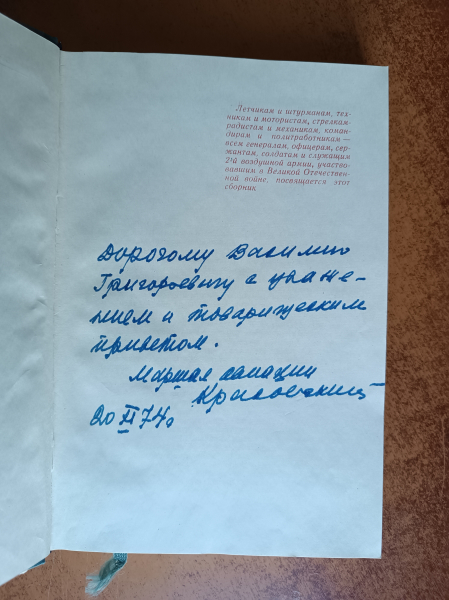 Летчикам и штурманам, тех-
никам и мотористам, стрелкам-
радистам и механикам, коман-
дирам и политработникам —
всем генералам, офицерам, сер-
жантам, солдатам и служащим
2-й воздушной армии, участво-
вавшим в Великой Отечествен-
ной войне, посвящается этот
сборник
Дорогому Василию
Григоровичу с уваже-
нием и товарищеским
приветом.
Маршал авиации
Красовский
20 XI 74.